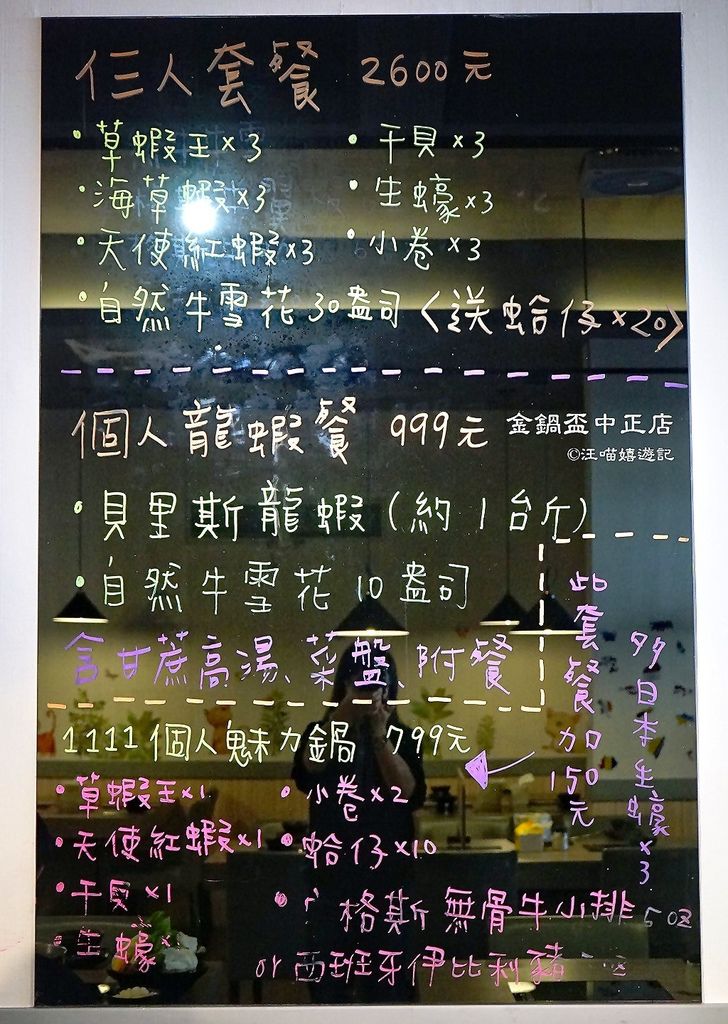 仨人套餐 2600元
・草蝦王×3 ・干貝×3
・海草蝦×3 ・生蠔×3
・天使紅蝦×3 ・小卷×3
・自然牛雪花30盎司〈送蛤仔×20〉
個人龍蝦餐 999元
金鍋盃中正店
©汪喵嬉遊記
・貝里斯龍蝦(約1台斤)
・自然牛雪花10盎司
含甘蔗高湯、菜盤、附餐
此套餐加150元
多日本生蠔×3
1111個人魅力鍋 799元
・草蝦王×1 ・小卷×2
・天使紅蝦×1 ・蛤仔×10
・干貝×1
・格斯無骨牛小排6oz
・生蠔×
or西班牙伊比利豬